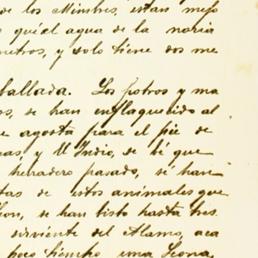 de los Mimbres, estan mejo
quiel agua de la noria
metros, y solo tiene dos me
ballada. Los potros y ma
os, se han enflaquecido al
e agosta para el pié de
mas, y el Indio, se
herradero pasado, se han
tas de estos animales que
hon, se han listo hasta tres
sirviente del Alamo, aca
poco tiempo una Leona,